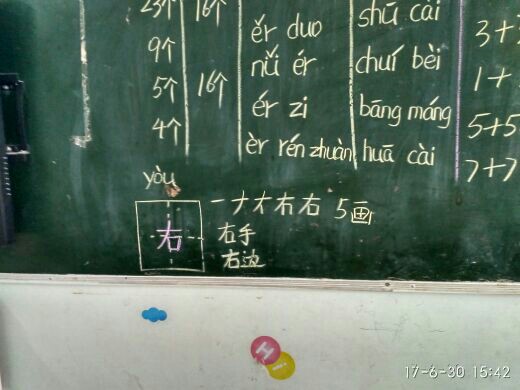 23个 16个 ěr duo shū cài
9个 nǚ ér chuí bèi
5个 16个 ér zi bāng máng 5+5
4个 èr rén zhuàn huā cài 7+7
yòu
一ナオ右右 5画
右 右手
右边
17-6-30 15:42